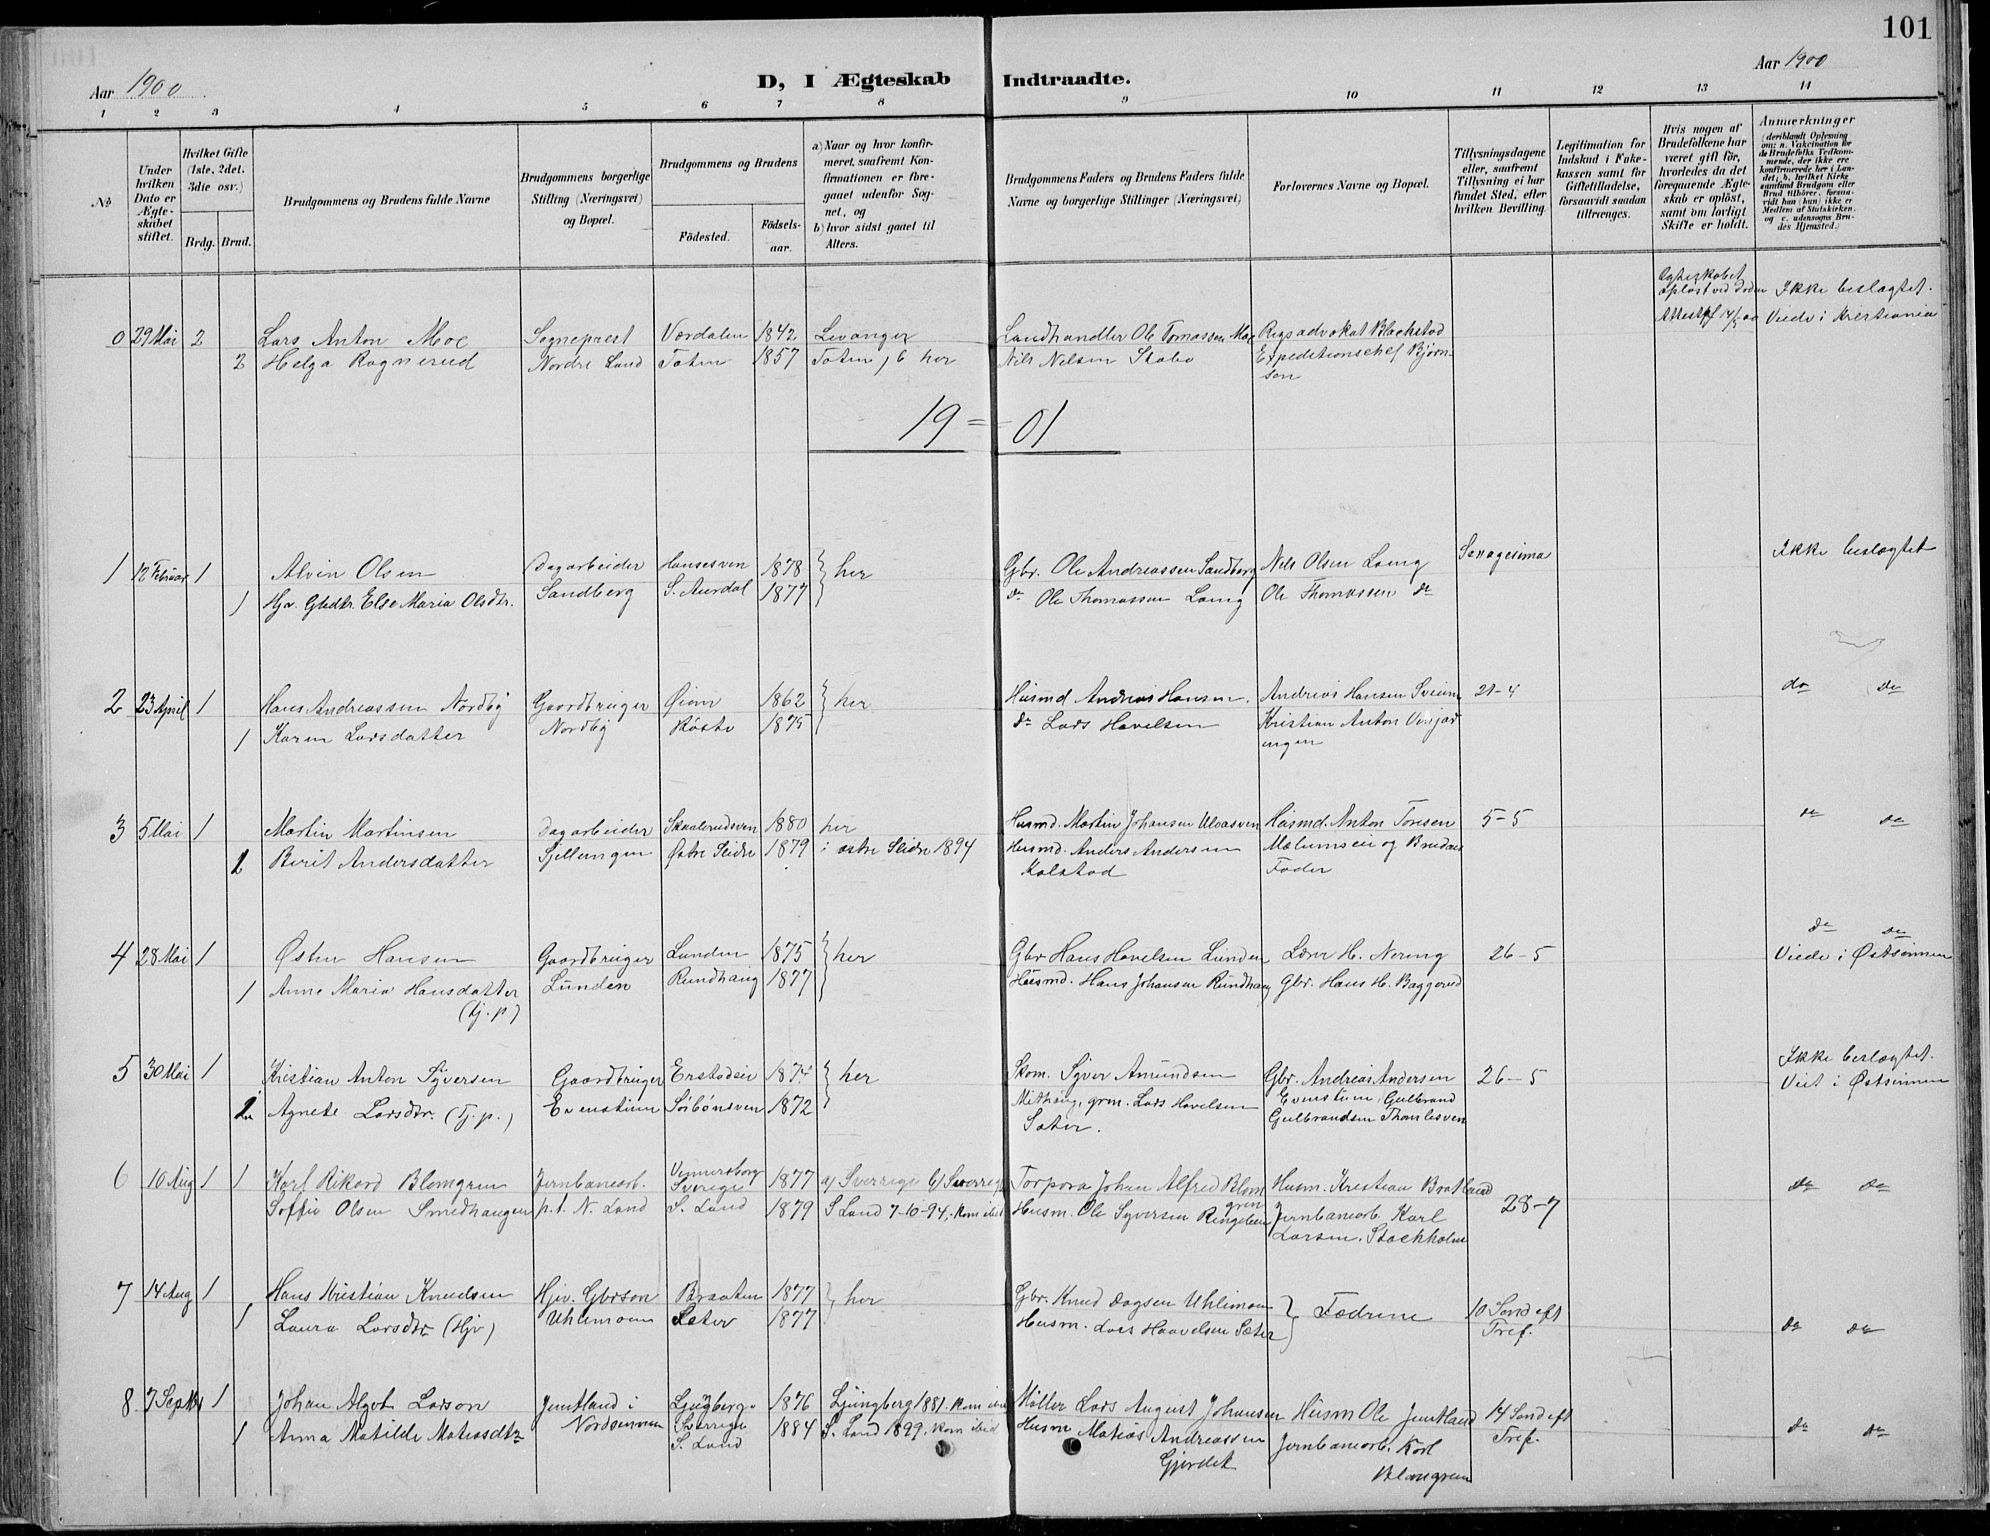 101
Aar 1900
D, I Ægteskab Indtraadte.
Aar 1900
1 2 3 4 5 6 7 8 9 10 11 12 13 14
No
Under hvilken Dato er Ægteskabet stiftet.
Hvilket Gifte (1ste, 2det, 3die osv.)
Brdg. Brud.
Brudgommens og Brudens fulde Navne
Brudgommens borgerlige Stilling (Næringsvei) og Bopæl.
Brudgommens og Brudens
Fødested.
Fødselsaar.
a) Naar og hvor konfirmeret, saafremt Konfirmationen er foregaaet udenfor Sognet, og
b) hvor sidst gaaet til Alters.
Brudgommens Faders og Brudens Faders fulde Navne og borgerlige Stillinger (Næringsvei)
Forlovernes Navne og Bopæl.
Tillysningsdagene eller, saafremt Tillysning ei har fundet Sted, efter hvilken Bevilling.
Legitimation for Indskud i Enkekassen samt for Giftetilladelse, forsaavidt saadan tiltrænges.
Hvis nogen af Brudefolkene har været gift før, hvorledes da det foregaaende Ægteskab er opløst, samt om lovligt Skifte er holdt.
Anmerkninger
(deriblandt Oplysning om: a. Vakcination for de Brudefolks Vedkommende, der ikke ere konfirmerede her i Landet; b. hvilket Kirkesamfund Brudgom eller Brud tilhører, forsaavidt han (hun) ikke er Medlem af Statskirken, og c. udensogns Brudes Hjemsted.)
0 29 Mai 2 Lars Anton Moe Sogneprest Værdalen 1842 Levanger Landhandler Ole Tomassen Moe Regjsadvokat Blackstad Egteskabet opløst ved Døden Ikke beslægtet.
2 Helga Rognerud Nordre Land Toten 1857 Toten, b her Nils Nilsen Skabo Expeditionschef Bjørnson Attest Viede i Kristiania
19 = 01
1 12 Februar 1 Alvin Olsen Dagarbeider 1878 } her Gbr. Ole Andreassen Sandberg Nils Olsen Loeng Sexagesima Ikke beslægtet
1 Hjv. Gbdtr. Else Maria Olsdtr. Sandberg S. Aurdal 1877 do Ole Thomassen Loeng Ole Thomassen do
2 23 April 1 Hans Andreassen Nordby Gaardbruger Øiom 1862 } her Husmd Andreas Hansen. Andreas Hansen 21-4 do do
1 Karen Larsdatter Nordby Røste 1875 do Lars Havelsen Kristian Anton
3 5 Mai 1 Martin Martinsen Dagarbeider 1880 her Husmd. Martin Johansen Husmd. Anton Tonsen 5-5 do do
1 Berit Andersdatter Østre Slidre 1879 i østre Slidre 1894 Husmd. Anders Andersen Kolstad og Brudens Fader
4 28 Mai 1 Østen Hansen Gaardbruger Lunden 1875 } her Gbr Hans Havelsen Lunden Lærer H. Nering 26-5 do do
1 Anne Maria Hansdatter (tj. p) Lunden Rundhaug 1877 Husmd. Hans Johansen Rundhaug Gbr. Hans H. Baggerud Viede i Østsinnen
5 30 Mai 1 Kristian Anton Syversen Gaardbruger 1874 } her Skom. Syver Amundsen Gbr. Andreas Andersen 26-5 Ikke beslægtet.
Agnete Larsdtr. (Tj. p.) Evenstuen 1872 Lars Havelsen Sæter. Evenstuen, Gulbrand Gulbrandsen Viet i Østsinnen
6 10 Aug 1 1 Karl Rikard Blomgren Jernbanearb. Vennersborg Sverige 1877 a) Sverrige b) Sverrige Torpare Johan Alfred Blomgren Husm. Kristian Bratland 28-7 do do
Soffie Olsen Smedhaugen p.t. N. Land S. Land 1879 S Land 7-10-94, kom ibid Husm. Ole Syversen Jernbanearb. Karl Larsen. Stockholm
7 14 Aug 1 Hans Kristian Knudsen Hjv. Gbrsøn Braaten 1877 } her Gbr. Knud Dagsen Uhlimoen } Fædrene 10 Sønd eft Tref. do do
1 Laura Larsdtr (Hjv) Uhlimoen Sæter 1877 Husm. Lars Haavelsen Sæter
8 7 Septbr 1 Johan Algot Larson Jemtland i Ljugberg. Sverrige 1876 Ljungberg 1881. kom ibid Møller Lars August Johansen Husm Ole Jemtland 14 Sønd eft Tref. do do
1 Anna Matilde Matissdtr Nordsinnen S. Land 1884 S. Land 1899, kom ibid Husm Matias Andreassen Gjerdet Jernbanearb. Karl Blomgren